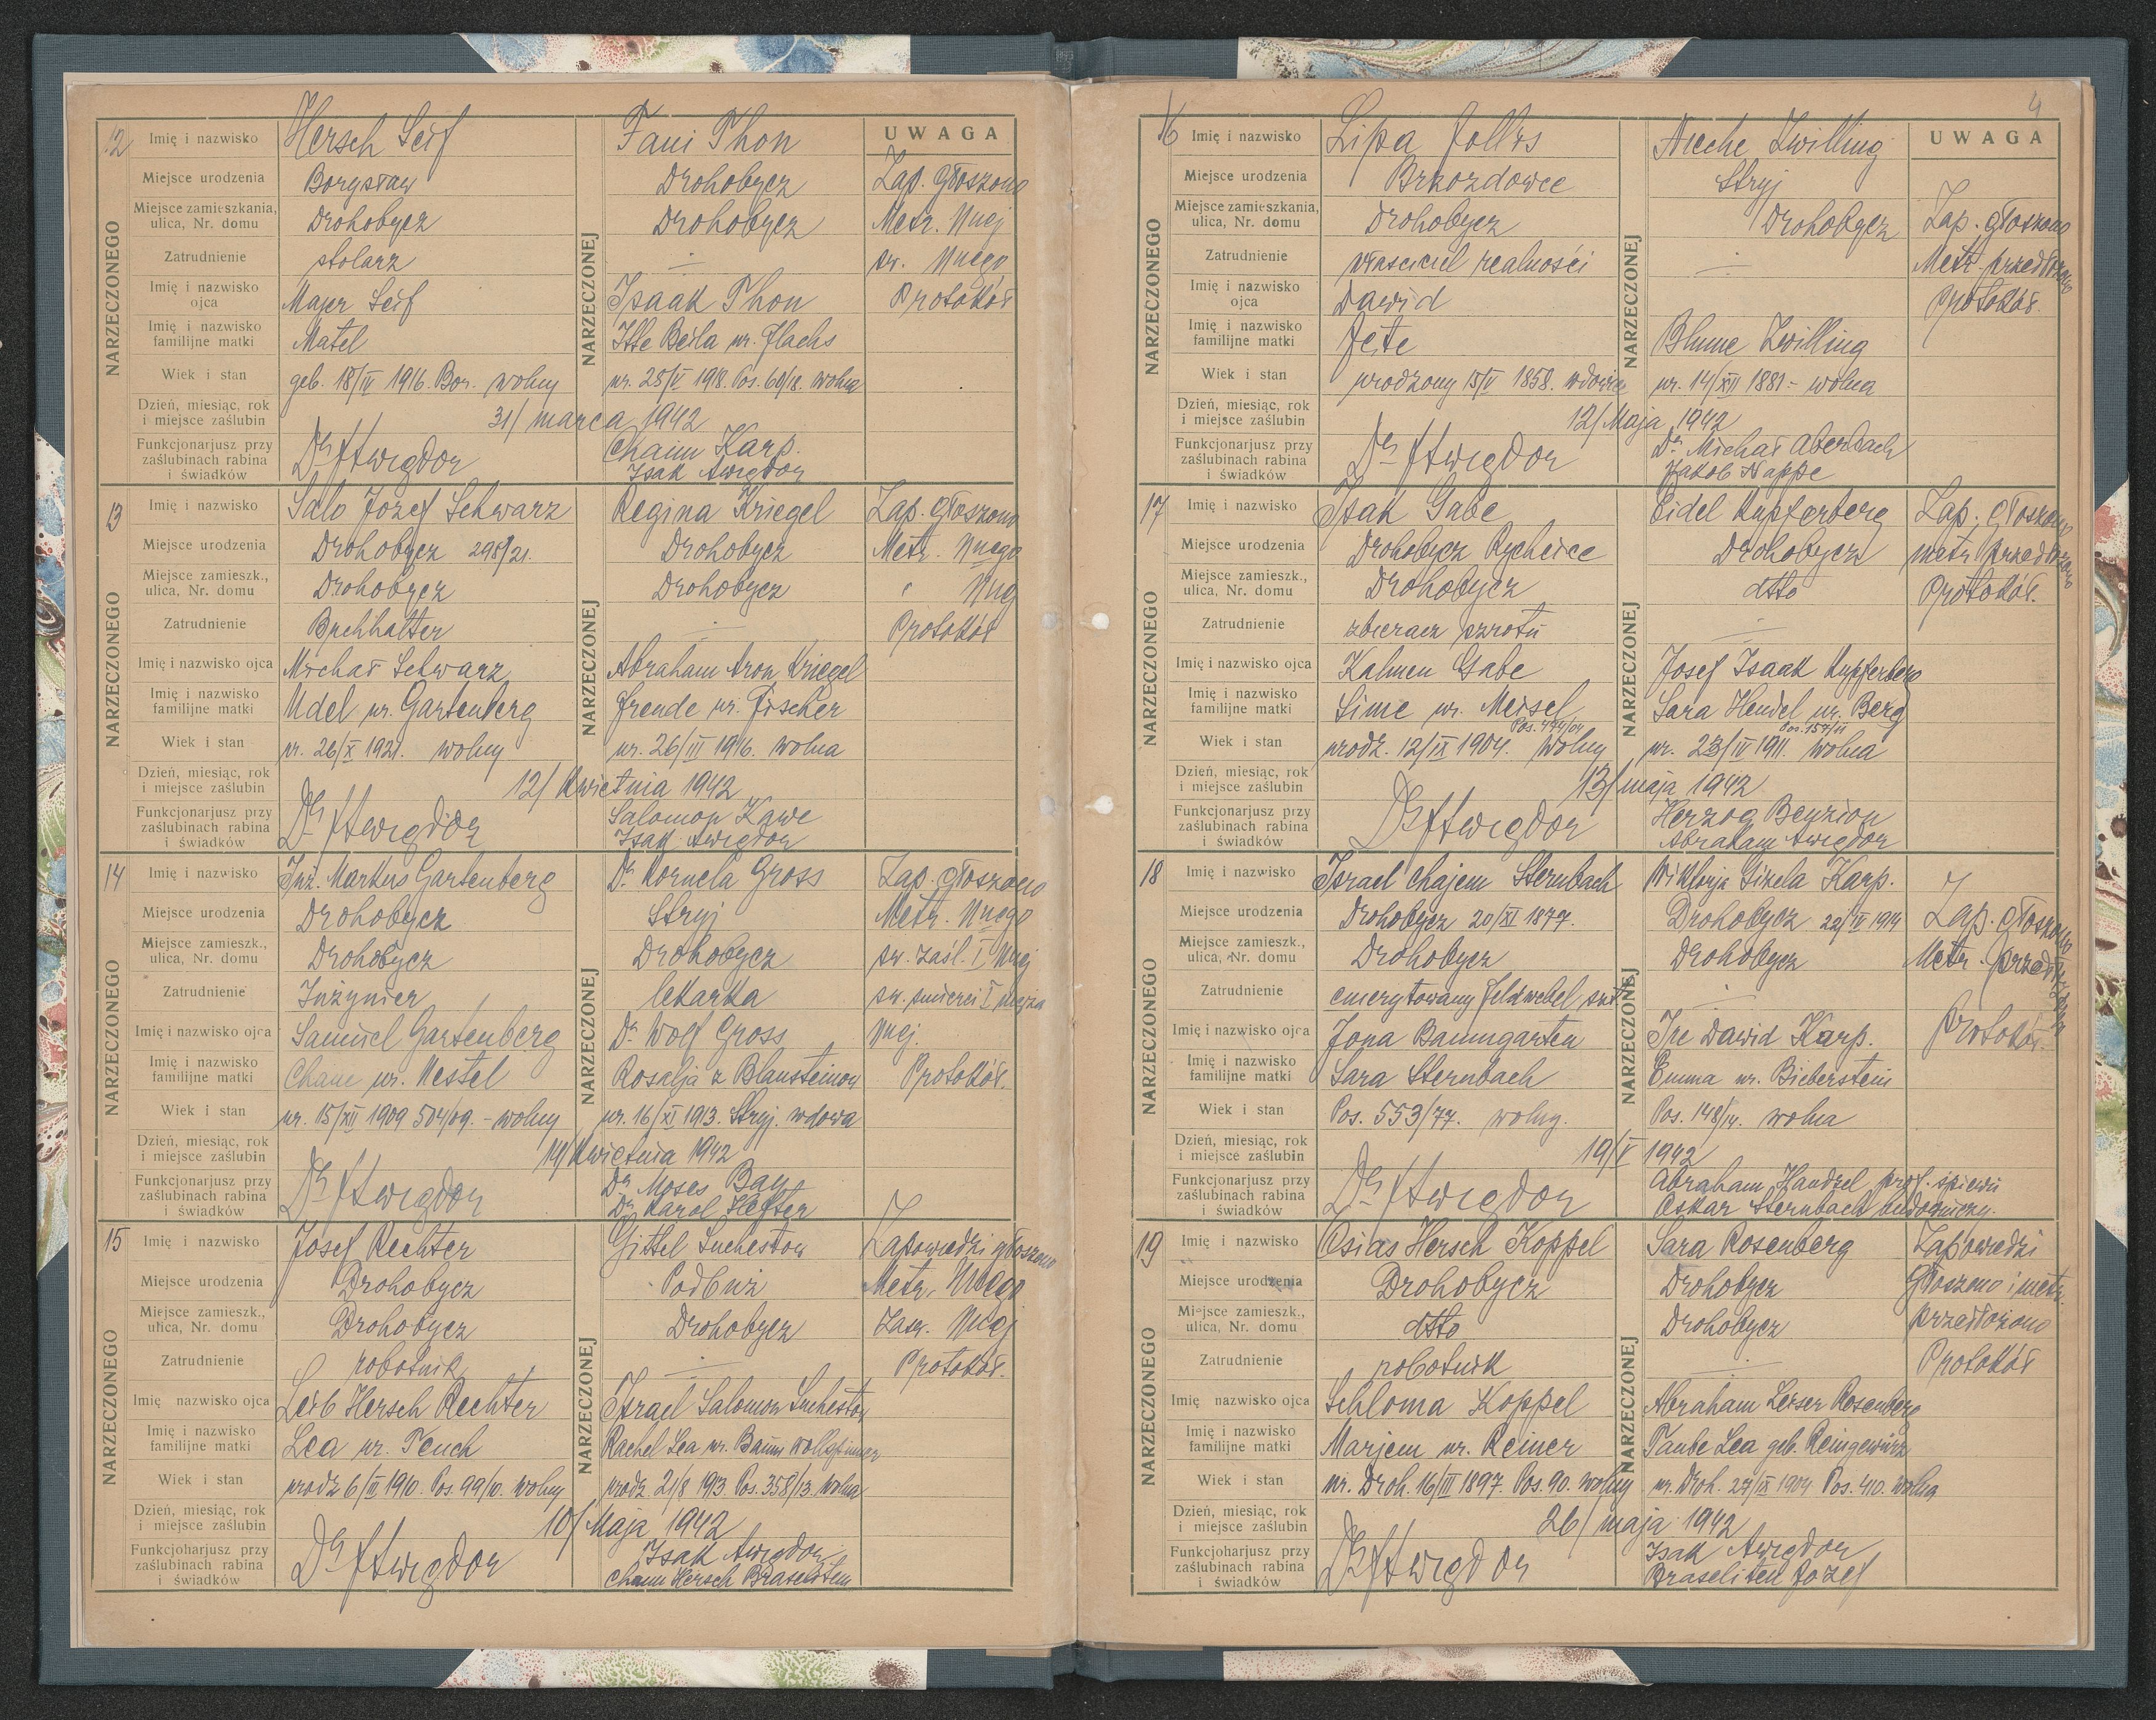 12
Imię i nazwisko Hersch Seif Fani Thon UWAGA
Miejsce urodzenia Borysław Drohobycz Zap. głoszono
Miejsce zamieszkania, ulica, Nr. domu Drohobycz Drohobycz Metr. Nucj
Zatrudnienie stolarz św. Nucgo
Imię i nazwisko ojca Majer Seif Isaak Thon Protokół
Imię i nazwisko familijne matki Matel Itte Beila ur. Flachs
Wiek i stan geb. 18/IV 1916. Bor. wolny ur. 25/V 1918. Pos. 60/18. wolna
Dzień, miesiąc, rok i miejsce zaślubin 31/ marca 1942
Funkcjonarjusz przy zaślubinach rabina i świadków Dr Awigdor Chaim Karp.
Isak Awigdor
NARZECZONEGO
NARZECZONEJ
13
Imię i nazwisko Salo Józef Schwarz Regina Kriegel Zap. głoszono
Miejsce urodzenia Drohobycz 298/21. Drohobycz Metr. Nucgo
Miejsce zamieszk., ulica, Nr. domu Drohobycz Drohobycz " Nucj
Zatrudnienie Buchhalter Protokół
Imię i nazwisko ojca Michał Schwarz Abraham Aron Kriegel
Imię i nazwisko familijne matki Udel ur. Gartenberg Freude ur. Fischer
Wiek i stan ur. 26/X 1921. wolny ur. 26/III 1916. wolna
Dzień, miesiąc, rok i miejsce zaślubin 12/ Kwietnia 1942
Funkcjonarjusz przy zaślubinach rabina i świadków Dr Awigdor Salomon Kawe
Isak Awigdor
NARZECZONEGO
NARZECZONEJ
14
Imię i nazwisko Inż. Markus Gartenberg Dr Kornela Gross Zap. głoszono
Miejsce urodzenia Drohobycz Stryj Metr. Nucgo
Miejsce zamieszk., ulica, Nr. domu Drohobycz Drohobycz św. zaśl. I Nucj
Zatrudnienie Inżynier lekarka św. śmierci I męża
Imię i nazwisko ojca Samuel Gartenberg Dr Wolf Gross Nucj.
Imię i nazwisko familijne matki Chane ur. Nestel Rosalja z Blausteinow Protokół.
Wiek i stan ur. 15/XII 1909 504/09. - wolny ur. 16/XI 1913. Stryj. wdowa
Dzień, miesiąc, rok i miejsce zaślubin 19/ Kwietnia 1942
Funkcjonarjusz przy zaślubinach rabina i świadków Dr Awigdor Dr Moses Bay
Dr Karol Hefter
NARZECZONEGO
NARZECZONEJ
15
Imię i nazwisko Josef Rechter Gittel Suchestow Zapowiedzi głoszono
Miejsce urodzenia Drohobycz Podbuż Metr. Nucgo
Miejsce zamieszk., ulica, Nr. domu Drohobycz Drohobycz Zasw. Nucj
Zatrudnienie robotnik Protokół.
Imię nazwisko ojca Leib Hersch Rechter Israel Salomon Suchestow
Imię i nazwisko familijne matki Lea ur. Teuch Rachel Lea ur. Baum
Wiek i stan urodz 6/III 1910. Pos. 99/10. wolny urodz. 21/8 1913 Pos. 358/13. wolna
Dzień, miesiąc, rok i miejsce zaślubin 10/ Maja 1942
Funkcjoharjusz przy zaślubinach rabina i świadków Dr Awigdor Isak Awigdor
Chaim Hersch
NARZECZONEGO
NARZECZONEJ
4
16
Imię i nazwisko Lipa Jolles Nieche Zwilling UWAGA
Miejsce urodzenia Brzozdowce Stryj
Miejsce zamieszkania, ulica, Nr. domu Drohobycz Drohobycz Zap. głoszono
Zatrudnienie właściciel realności Metr. przedłożono
Imię i nazwisko ojca Dawid Protokół.
Imię i nazwisko familijne matki Jeite Blume Zwilling
Wiek i stan urodzony 15/V 1858. wdowiec ur. 14/XII 1881 - wolna
Dzień, miesiąc, rok i miejsce zaślubin 12/ Maja 1942
Funkcjonarjusz przy zaślubinach rabina i świadków Dr Awigdor Dr Michał Aberbach
Jakob Nappe
NARZECZONEGO
NARZECZONEJ
17
Imię i nazwisko Isak Gabe Eidel Kupferberg Zap. głoszono
Miejsce urodzenia Drohobycz Rychcice Drohobycz metr. przedłożono
Miejsce zamieszk., ulica, Nr. domu Drohobycz dtto Protokół.
Zatrudnienie zbieracz szrotu
Imię i nazwisko ojca Kalmen Gabe Josef Isaak Kupferberg
Imię i nazwisko familijne matki Sime ur. Meisel Sara Hendel ur. Berg
Pos. 474/04 Pos. 157/11
Wiek i stan urodz. 12/IX 1904. wolny ur. 23/IV 1911. wolna
Dzień, miesiąc, rok i miejsce zaślubin 13/ maja 1942
Funkcjonarjusz przy zaślubinach rabina i świadków Dr Awigdor Herzog Benzion
Abraham Awigdor
NARZECZONEGO
NARZECZONEJ
18
Imię i nazwisko Israel Chajem Sternbach Wiktorja Gizela Karp.
Miejsce urodzenia Drohobycz 20/XI 1877. Drohobycz 22/IV 1914 Zap. głoszono
Miejsce zamieszk., ulica, Nr. domu Drohobycz Drohobycz Metr. przedłożono
Zatrudnienie emerytowany Feldwebel
Imię i nazwisko ojca Jona Baumgarten Ire Dawid Karp. Protokół
Imię i nazwisko familijne matki Sara Sternbach Emma ur. Bieberstein
Wiek i stan Pos. 553/77. wolny. Pos. 148/14. wolna
Dzień, miesiąc, rok i miejsce zaślubin 19/V 1942
Funkcjonarjusz przy zaślubinach rabina i świadków Dr Awigdor Abraham Handzel prof. śpiewu
Oskar Sternbach budowniczy.
NARZECZONEGO
NARZECZONEJ
19
Imię i nazwisko Osias Hersch Koppel Sara Rosenberg Zapowiedzi
Miejsce urodzenia Drohobycz Drohobycz głoszono i metr.
Miejsce zamieszk., ulica, Nr. domu dtto Drohobycz przedłożono
Zatrudnienie robotnik Protokół
Imię nazwisko ojca Schloma Koppel Abraham Leiser Rosenberg
Imię i nazwisko familijne matki Marjem ur. Reiner Taube Lea geb. Reingewürz
Wiek i stan ur. Droh. 16/III 1897. Pos. 90. wolny ur. Droh. 27/IX 1904 Pos. 410. wolna
Dzień, miesiąc, rok i miejsce zaślubin 26/ maja 1942
Funkcjoharjusz przy zaślubinach rabina i świadków Dr Awigdor Isak Awigdor
Braseliten Jozef
NARZECZONEGO
NARZECZONEJ